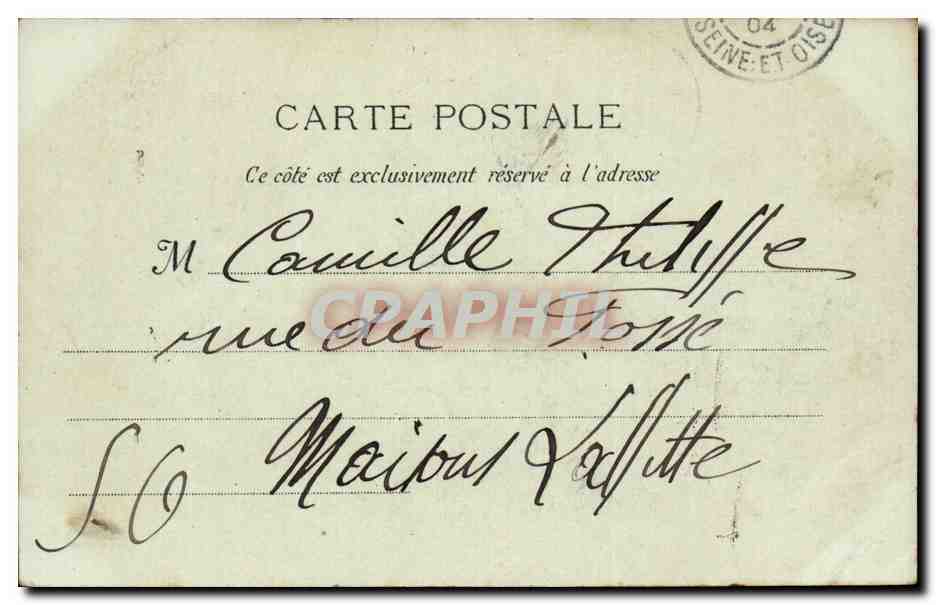 04
SEINE-ET-OISE
CARTE POSTALE
Ce côté est exclusivement réservé à l'adresse
M Camille Philippe
rue du Fossé
Maisons Laffitte
S O
CPAPHIL